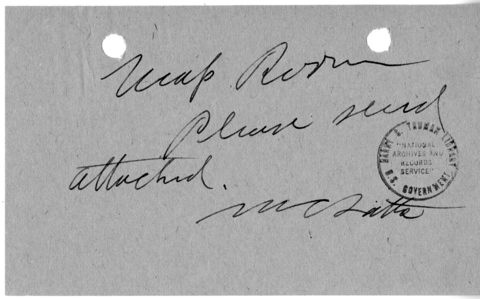 Map Room
Please send
attached.
HARRY S. TRUMAN LIBRARY
"NATIONAL
ARCHIVES AND
RECORDS
SERVICE"
U.S. GOVERNMENT